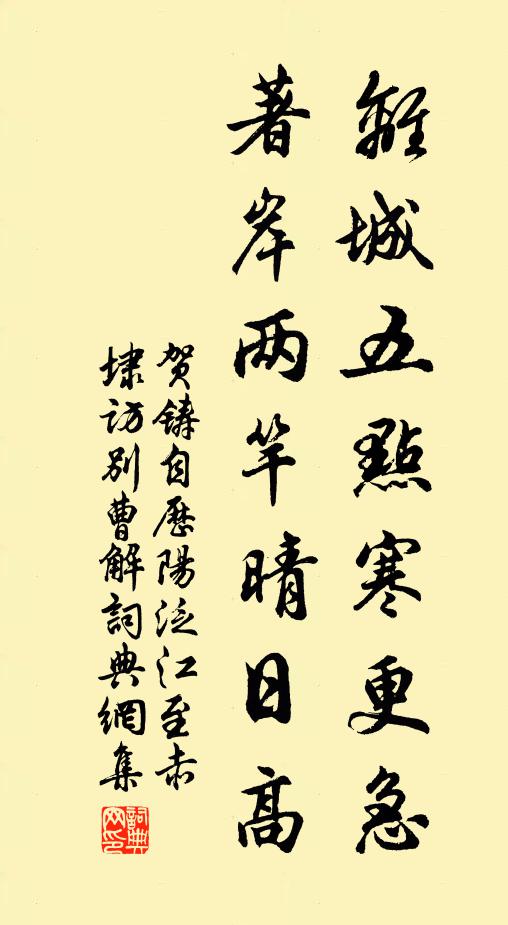 離城五點寒更急
著岸两竿晴日高
贺鑄自歷陽泛江至赤
埭訪別曹解詞典網集
詞典網印